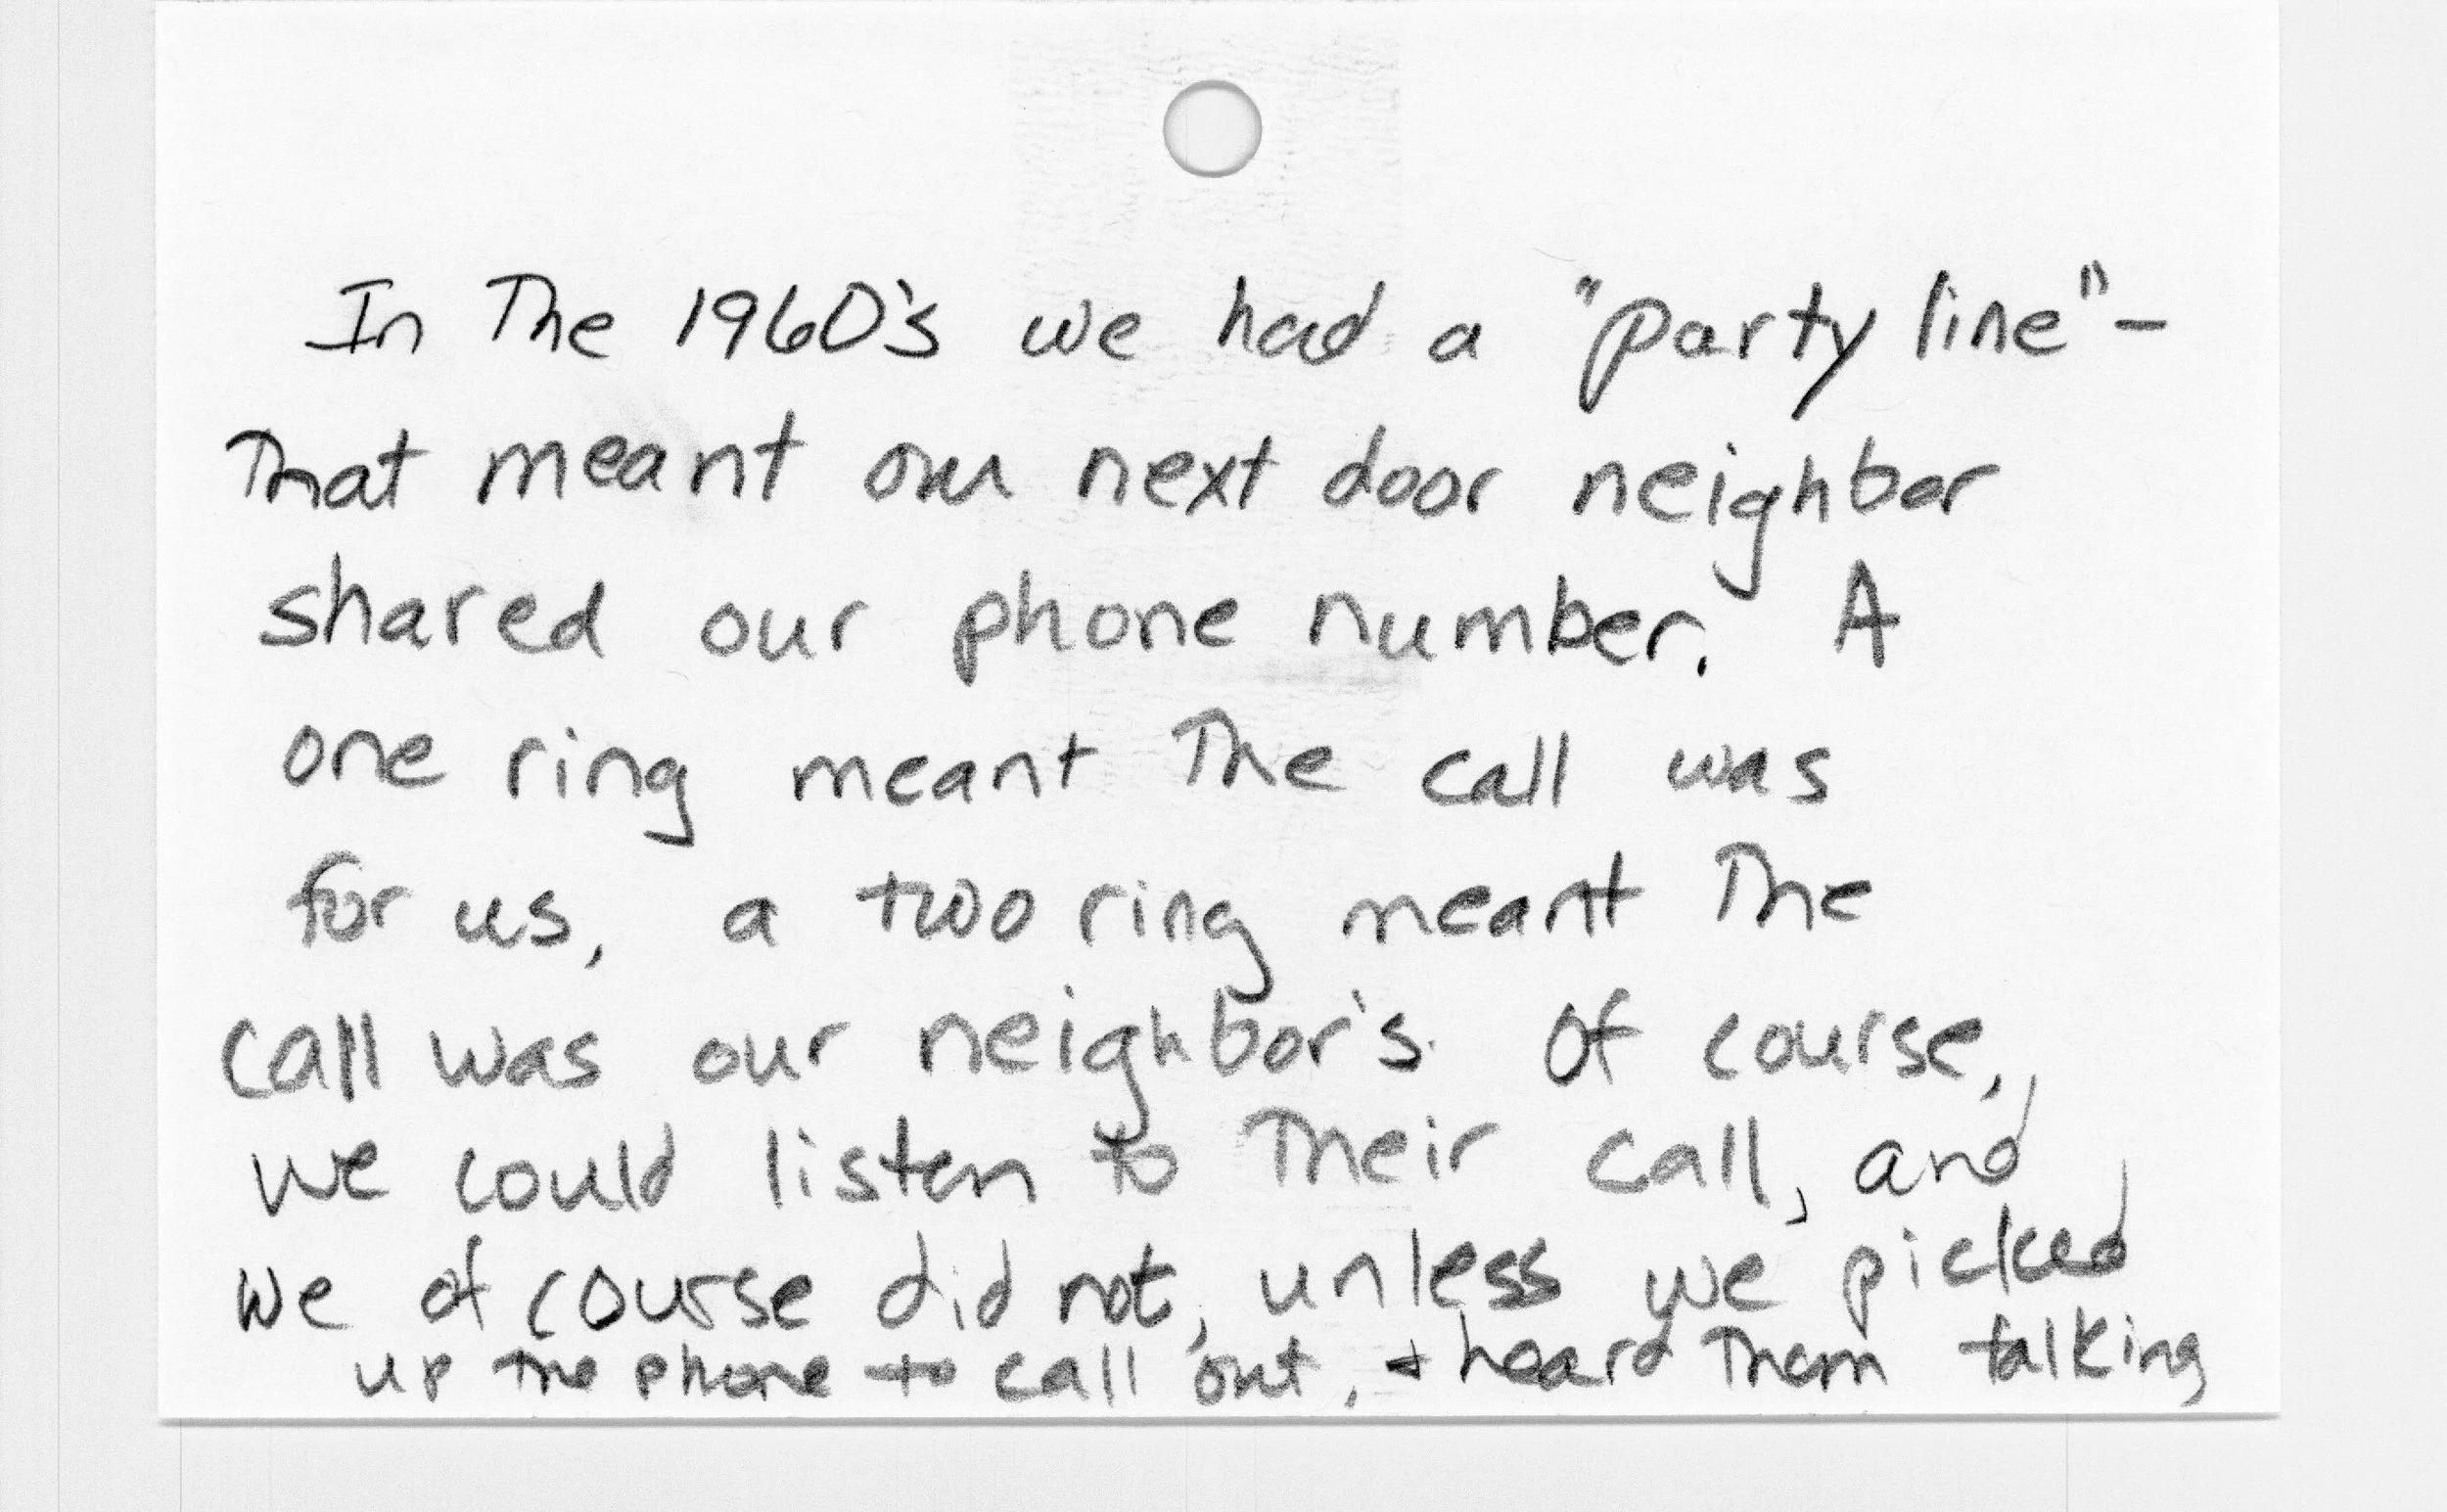 In The 1960's we had a "party line"-
That meant our next door neighbor
shared our phone number. A
one ring meant The call was
for us, a two ring meant The
call was our neighbor's. Of course,
we could listen to Their call, and
we of course did not, unless we picked
up the phone to call out, + heard Them talking